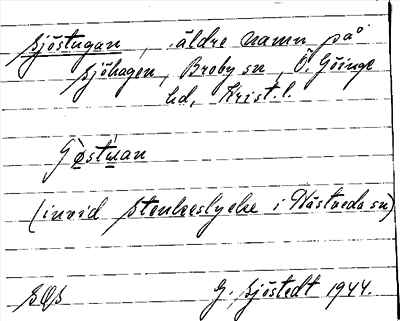 Sjöstugan, äldre namn på
Sjöhagen, Broby sn, Ö. Göinge
hd, Krist. l.
(invid Stenkeslycke i Hästveda sn)
SOS
G. Sjöstedt 1944.